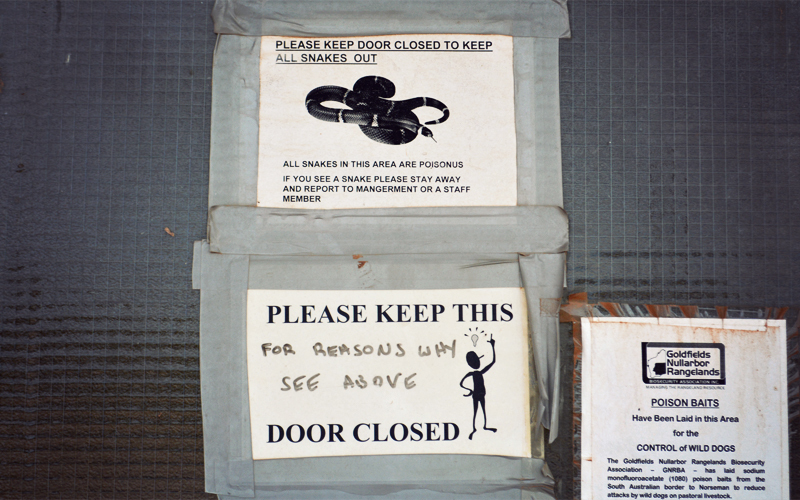 PLEASE KEEP DOOR CLOSED TO KEEP
ALL SNAKES OUT
ALL SNAKES IN THIS AREA ARE POISONUS
IF YOU SEE A SNAKE PLEASE STAY AWAY
AND REPORT TO MANGERMENT OR A STAFF
MEMBER
PLEASE KEEP THIS
FOR REASONS WHY
SEE ABOVE
DOOR CLOSED
Goldfields
Nullarbor
Rangelands
BIOSECURITY ASSOCIATION INC.
MANAGING THE RANGELAND RESOURCE
POISON BAITS
Have Been Laid in this Area
for the
CONTROL of WILD DOGS
The Goldfields Nullarbor Rangelands Biosecurity
Association – GNRBA – has laid sodium
monofluoroacetate (1080) poison baits from the
South Australian border to Norseman to reduce
attacks by wild dogs on pastoral livestock.